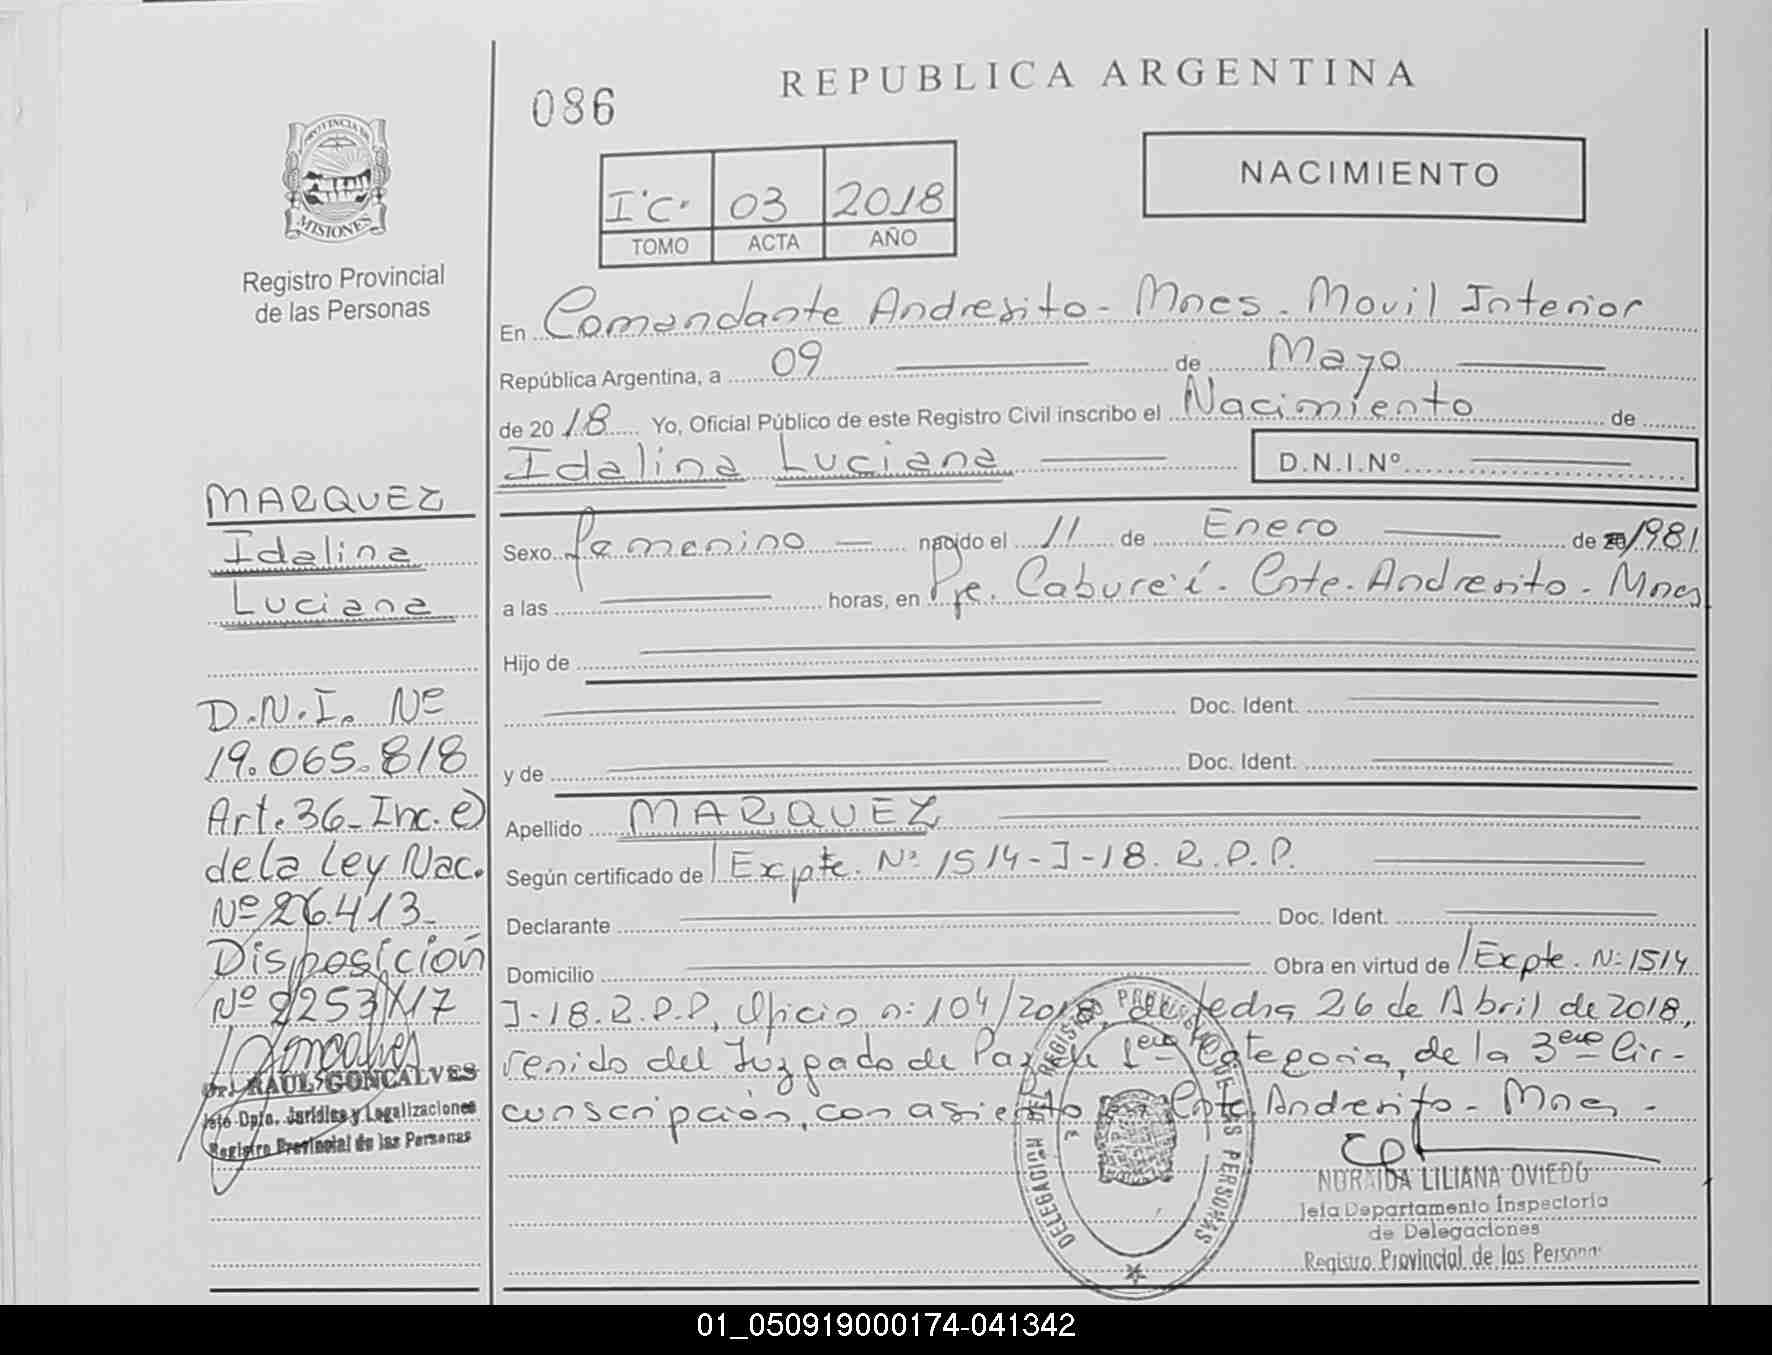 086
REPUBLICA ARGENTINA
NACIMIENTO
I°C. 03 2018
TOMO ACTA AÑO
PROVINCIA DE
MISIONES
Registro Provincial
de las Personas
En Comandante Andresito - Mnes. Movil Interior
República Argentina, a 09 de Mayo
de 2018 Yo, Oficial Público de este Registro Civil inscribo el Nacimiento de
Idalina Luciana D.N.I.Nº
Sexo femenino nacido el 11 de Enero de 1981
a las horas, en Pje. Caburei. Cnte. Andresito - Mnes
Hijo de
Doc. Ident.
y de Doc. Ident.
Apellido MARQUEZ
Según certificado de /Expte. Nº 1514-J-18. R.P.P.
Declarante Doc. Ident.
Domicilio Obra en virtud de /Expte. Nº 1514
J-18. R.P.P, Oficio nº 104/2018, de fecha 26 de Abril de 2018,
venido del Juzgado de Paz de 1era Categoria, de la 3era Cir-
cunscripción, con asiento en Cnte. Andresito - Mnes -
NORAIDA LILIANA OVIEDO
Jefa Departamento Inspectoria
de Delegaciones
Registro Provincial de las Personas
DELEGACION DEL REGISTRO PROVINCIAL DE LAS PERSONAS
MARQUEZ
Idalina
Luciana
D.N.I. Nº
19.065.818
Art. 36 - Inc. e)
de la Ley Nac.
Nº 26.413 -
Disposición
Nº 2253/17
Dr. RAUL GONCALVES
Jefe Dpto. Jurídico y Legalizaciones
Registro Provincial de las Personas
01_050919000174-041342